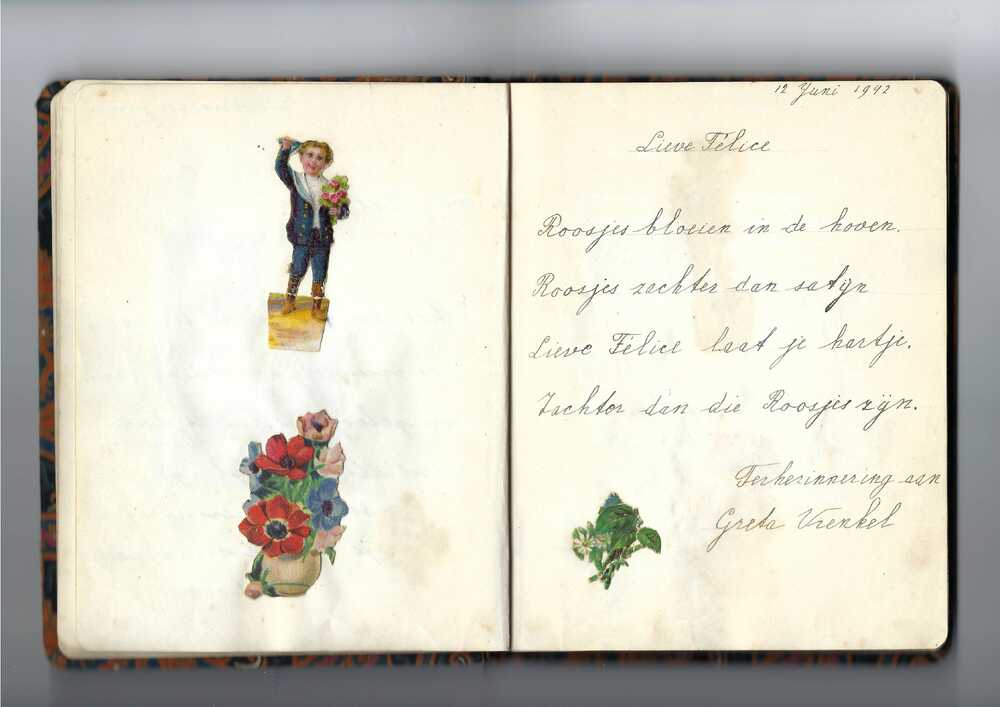 12 Juni 1942
Lieve Félice
Roosjes bloeien in de hoven.
Roosjes zachter dan satijn
Lieve Félice laat je hartje.
Zachter dan die Roosjes zijn.
Terherinnering aan
Greta Vrenkel